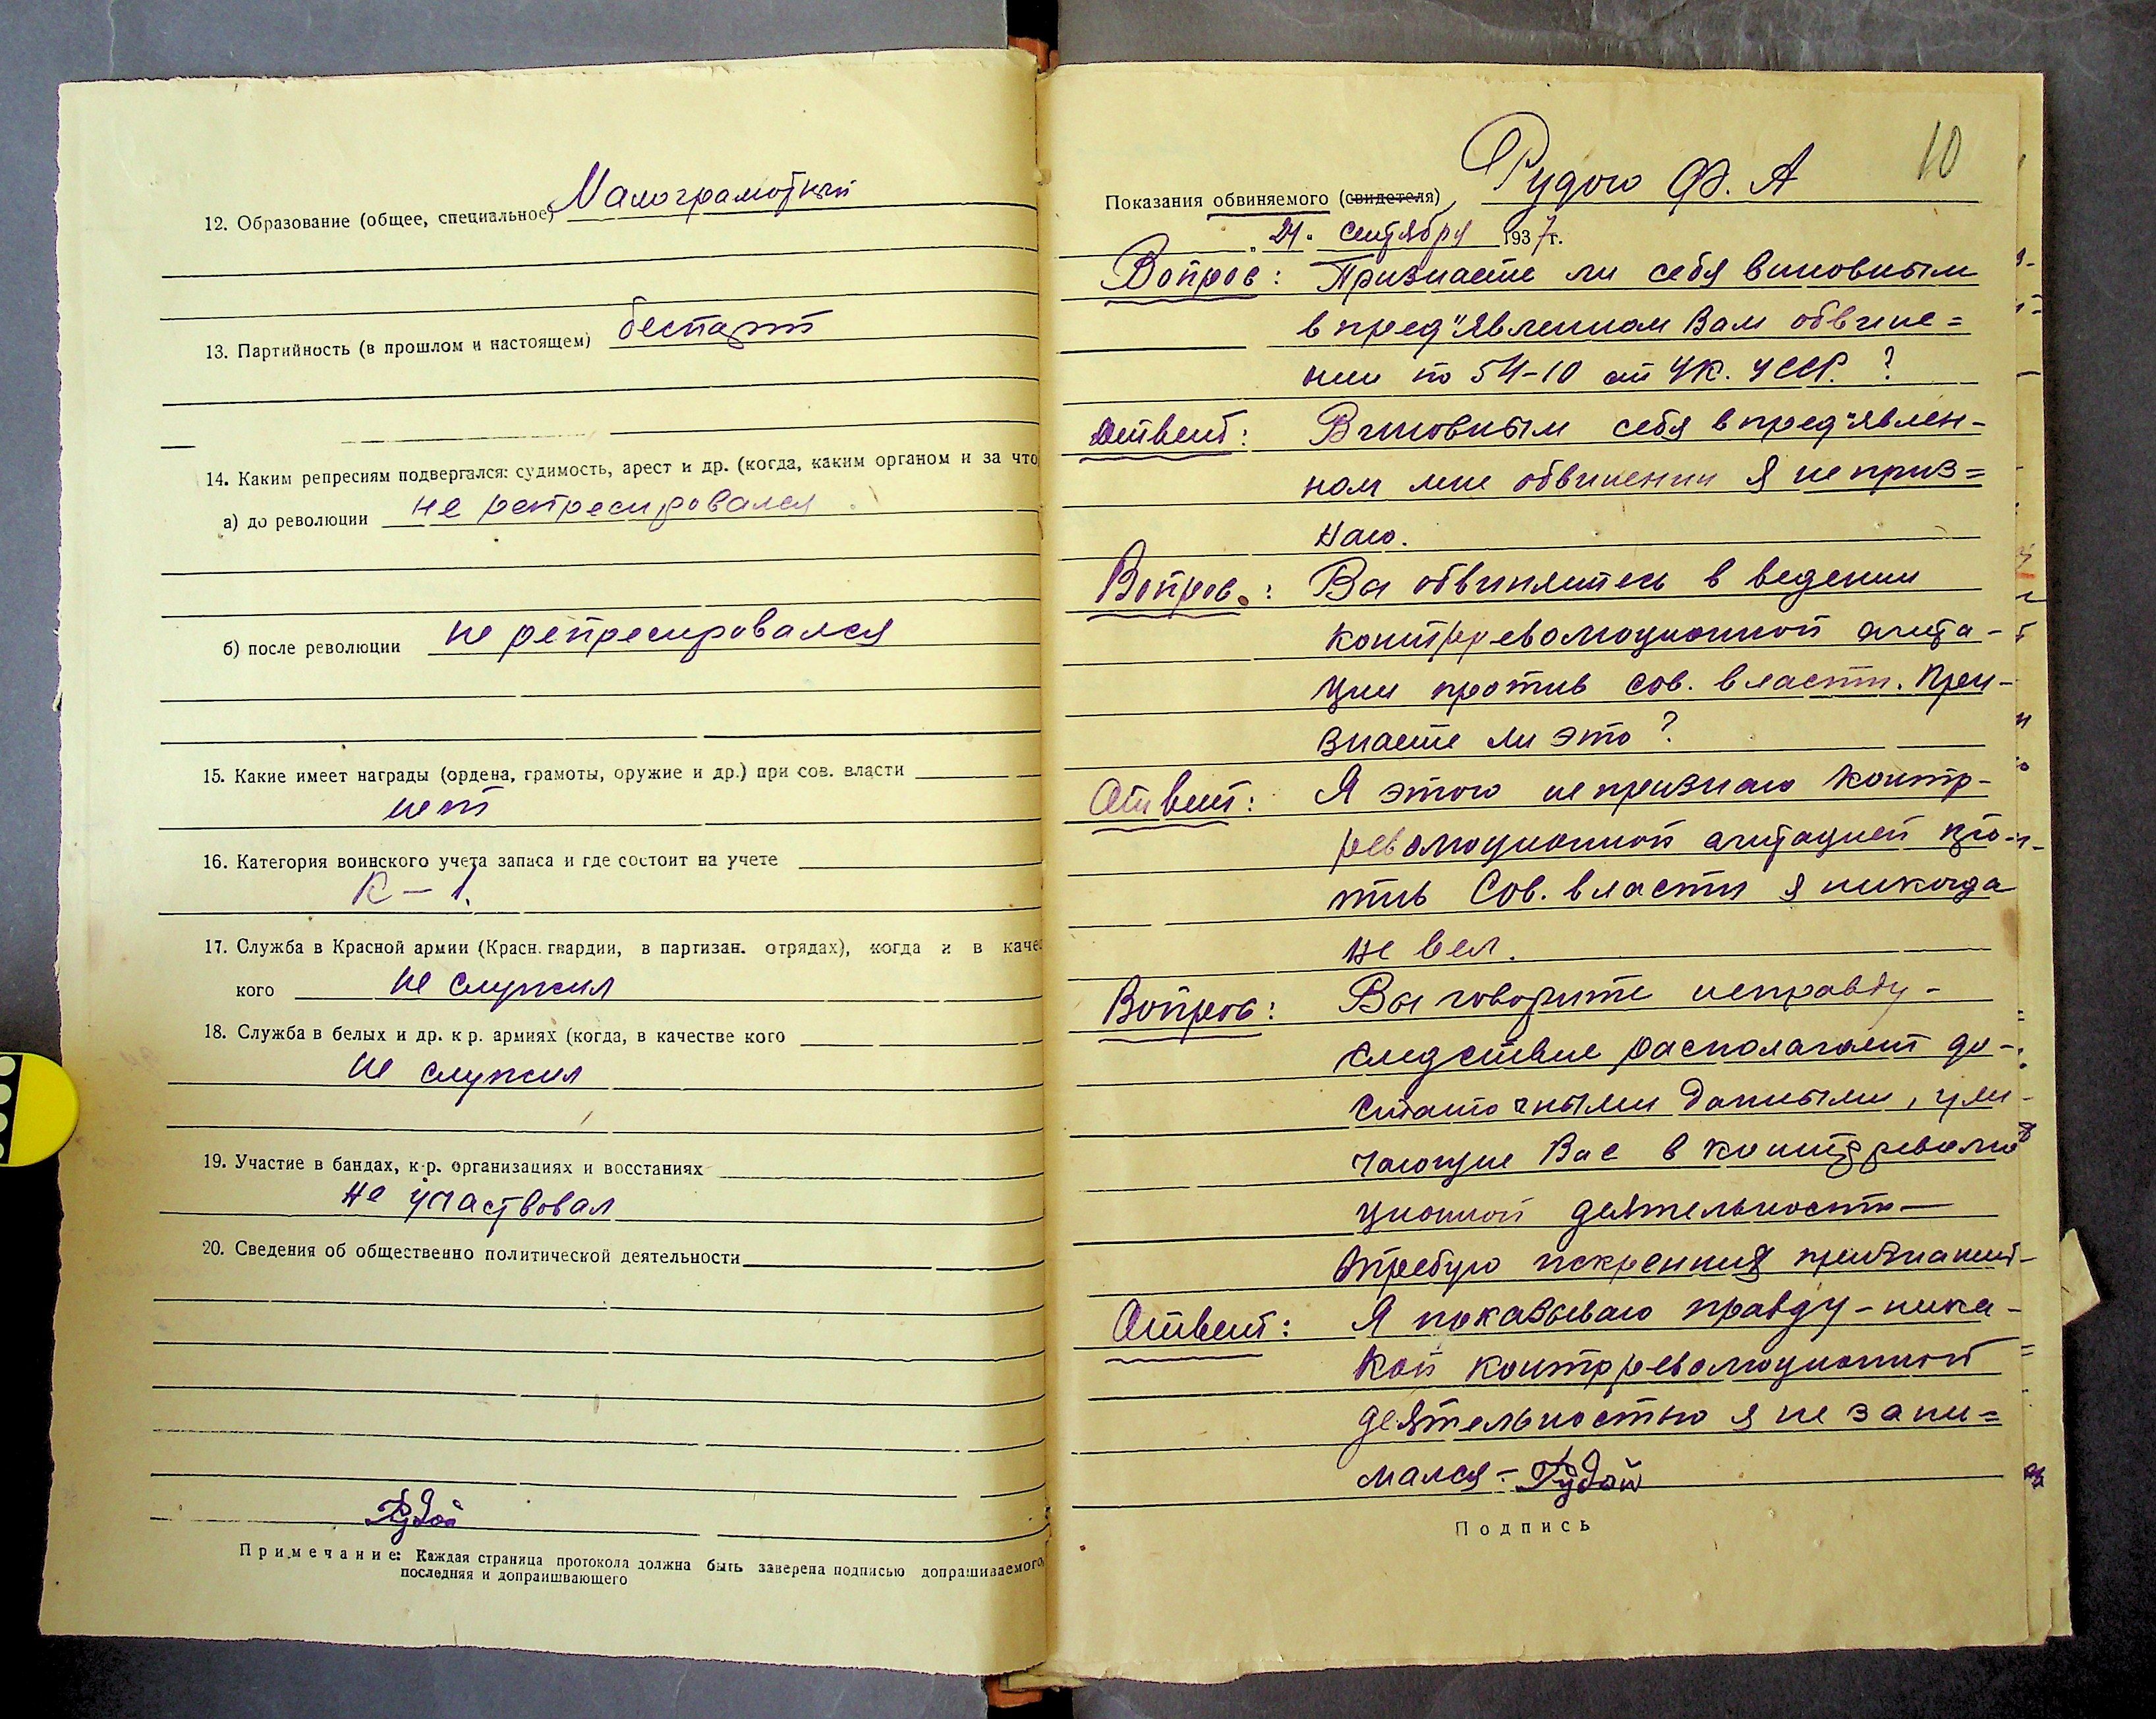 12. Образование (общее, специальное) Малограмотный
13. Партийность (в прошлом и настоящем) беспарт
14. Каким репресиям подвергался: судимость, арест и др. (когда, каким органом и за что
а) до революции не репресировался.
б) после революции не репресировался
15. Какие имеет награды (ордена, грамоты, оружие и др.) при сов. власти
нет
16. Категория воинского учета запаса и где состоит на учете
К – 1.
17. Служба в Красной армии (Красн. гвардии, в партизан. отрядах), когда и в каче
кого не служил
18. Служба в белых и др. к р. армиях (когда, в качестве кого
не служил
19. Участие в бандах, к-р. организациях и восстаниях
не участвовал
20. Сведения об общественно политической деятельности
Рудой
Примечание: Каждая страница протокола должна быть заверена подписью допрашиваемого,
последняя и допрашивающего
10
Показания обвиняемого (свидетеля) Рудого Ф. А
" сентября 1937г.
Вопрос: Признаете ли себя виновным
в пред"явленном Вам обвине=
нии по 54-10 ст УК. УССР. ?
Ответ: Виновным себя в пред"явлен-
ном мне обвинении я не приз=
наю.
Вопрос.: Вы обвиняетесь в ведении
контрреволюционной агита-
ции против сов. власти. При-
знаете ли это?
Ответ: Я этого не признаю контр-
революционной агитацией про-
тив Сов. власти я никогда
не вел.
Вопрос: Вы говорите неправду-
следствие располагает до-
статочными данными, ули-
чающие Вас в контрреволю
ционной деятельности—
требую искренния признаний-
Ответ: Я показываю правду-ника-
кой контрреволюционной
деятельностью я не зани=
мался – Рудой
Подпись